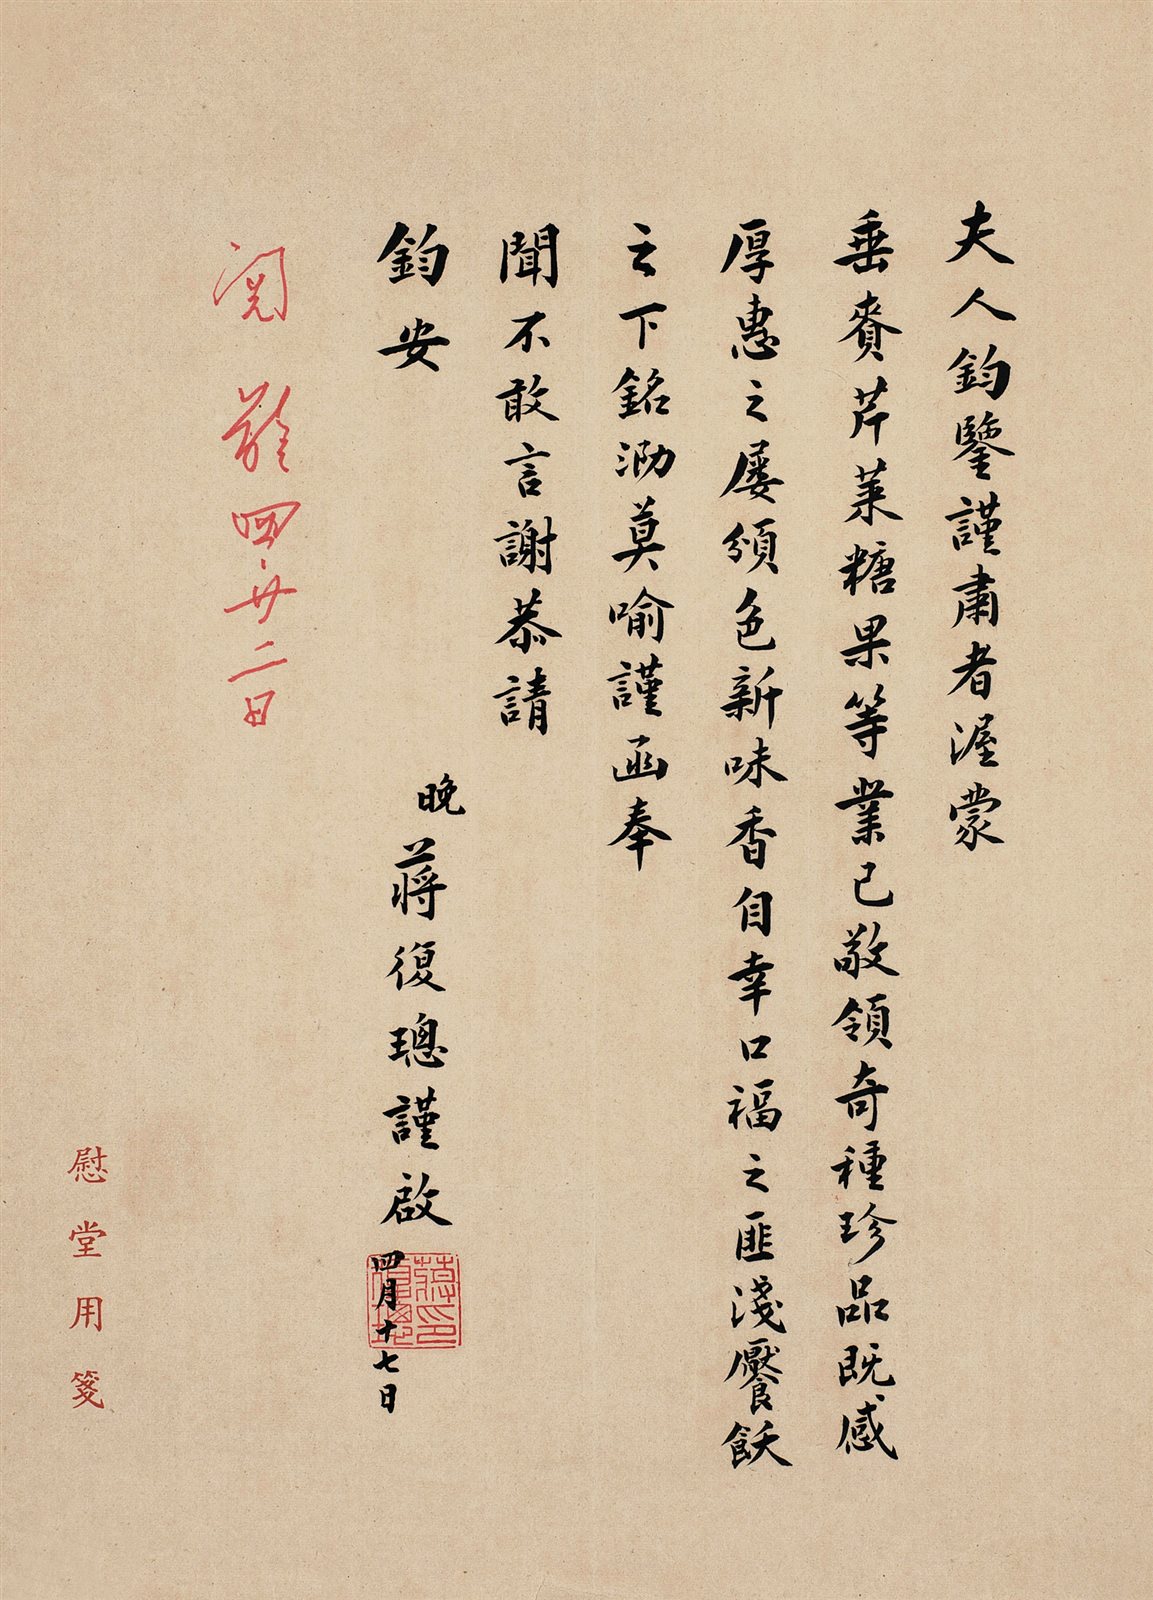 夫人鈞鑒謹肅者渥蒙
垂賚芹菜糖果等業已敬領奇種珍品既感
厚惠之屢頒色新味香自幸口福之匪淺饜飫
之下銘泐莫喻謹函奉
聞不敢言謝恭請
鈞安
晚蔣復璁謹啟
四月十七日
蔣復璁印
閱
四廿二日
慰堂用箋